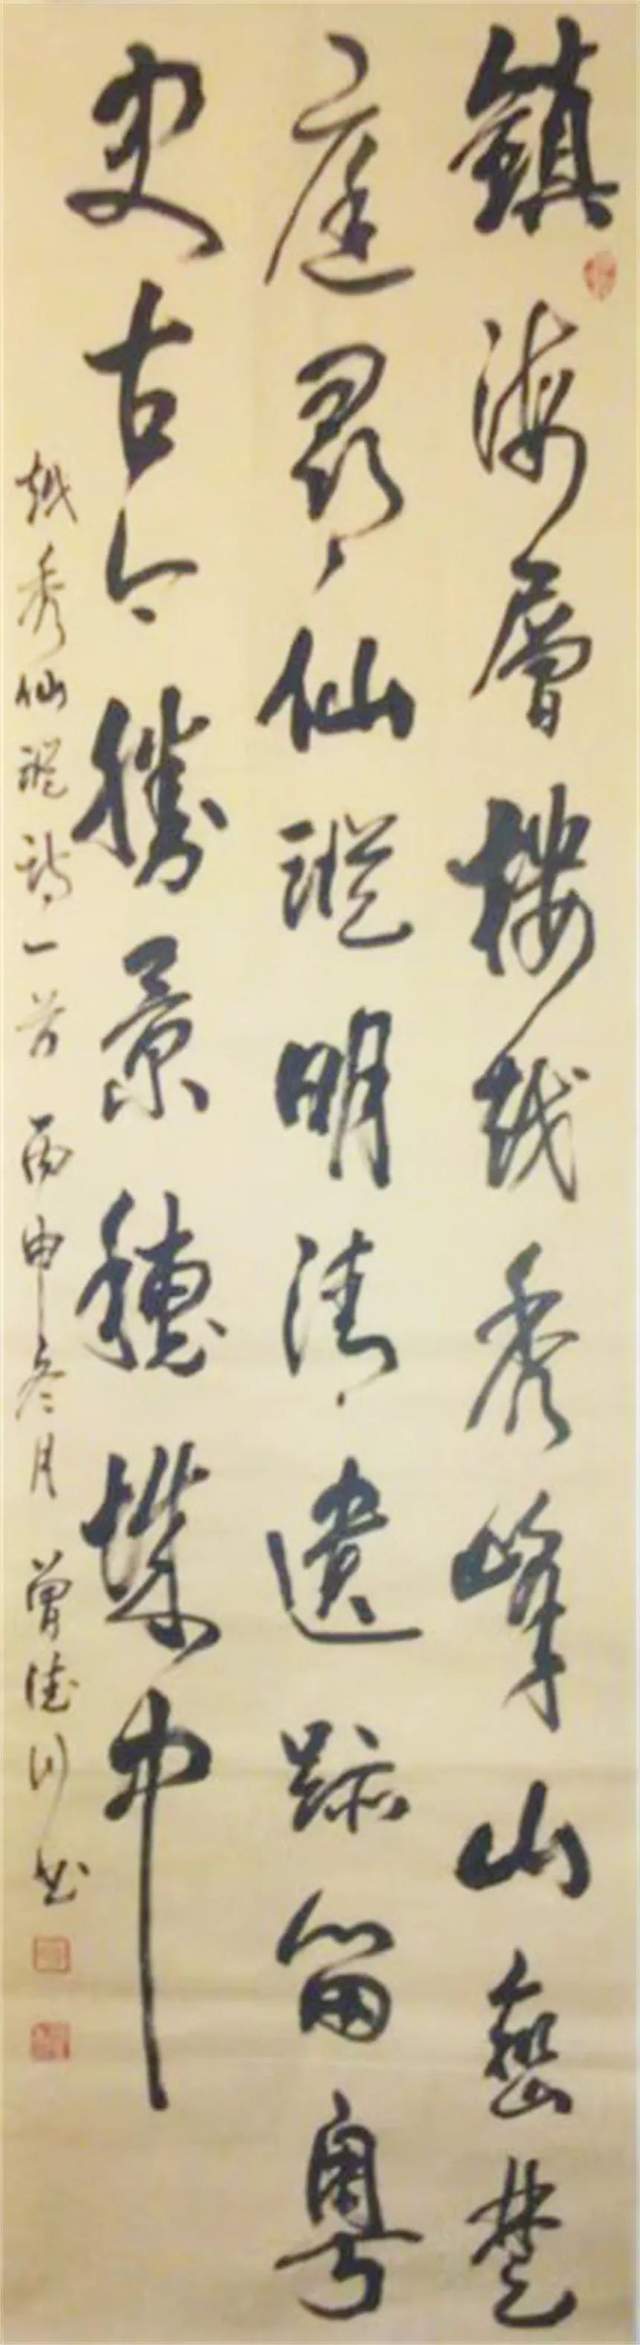 鎮海層樓越秀峰山巒楚
庭尋仙蹤明清遺跡留粵
史古今勝景穗城中
越秀仙蹤詩一首 丙申冬月 曾德川书